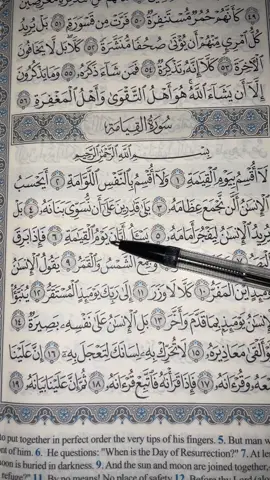 ٤٩ كَأَنَّهُمْ حُمُرٌ مُّسْتَنفِرَةٌ ٥٠ فَرَّتْ مِن قَسْوَرَةٍ ٥١ بَلْ يُرِيدُ
كُلُّ ٱمْرِئٍ مِّنْهُمْ أَن يُؤْتَىٰ صُحُفًا مُّنَشَّرَةً ٥٢ كَلَّا ۖ بَل لَّا يَخَافُونَ
ٱلْـَٔاخِرَةَ ٥٣ كَلَّآ إِنَّهُۥ تَذْكِرَةٌ ٥٤ فَمَن شَآءَ ذَكَرَهُۥ ٥٥ وَمَا يَذْكُرُونَ
إِلَّآ أَن يَشَآءَ ٱللَّهُ ۚ هُوَ أَهْلُ ٱلتَّقْوَىٰ وَأَهْلُ ٱلْمَغْفِرَةِ ٥٦
سُورَةُ ٱلْقِيَامَةِ
بِسْمِ ٱللَّهِ ٱلرَّحْمَٰنِ ٱلرَّحِيمِ
لَآ أُقْسِمُ بِيَوْمِ ٱلْقِيَٰمَةِ ١ وَلَآ أُقْسِمُ بِٱلنَّفْسِ ٱللَّوَّامَةِ ٢ أَيَحْسَبُ
ٱلْإِنسَٰنُ أَلَّن نَّجْمَعَ عِظَامَهُۥ ٣ بَلَىٰ قَٰدِرِينَ عَلَىٰٓ أَن نُّسَوِّىَ بَنَانَهُۥ ٤ بَلْ
يُرِيدُ ٱلْإِنسَٰنُ لِيَفْجُرَ أَمَامَهُۥ ٥ يَسْـَٔلُ أَيَّانَ يَوْمُ ٱلْقِيَٰمَةِ ٦ فَإِذَا بَرِقَ
وَجُمِعَ ٱلشَّمْسُ وَٱلْقَمَرُ ٩ يَقُولُ ٱلْإِنسَٰنُ
أَيْنَ ٱلْمَفَرُّ ١٠ كَلَّا لَا وَزَرَ ١١ إِلَىٰ رَبِّكَ يَوْمَئِذٍ ٱلْمُسْتَقَرُّ ١٢ يُنَبَّؤُا۟
ٱلْإِنسَٰنُ يَوْمَئِذٍۭ بِمَا قَدَّمَ وَأَخَّرَ ١٣ بَلِ ٱلْإِنسَٰنُ عَلَىٰ نَفْسِهِۦ بَصِيرَةٌ ١٤
أَلْقَىٰ مَعَاذِيرَهُۥ ١٥ لَا تُحَرِّكْ بِهِۦ لِسَانَكَ لِتَعْجَلَ بِهِۦٓ ١٦ إِنَّ عَلَيْنَا
وَقُرْءَانَهُۥ ١٧ فَإِذَا قَرَأْنَٰهُ فَٱتَّبِعْ قُرْءَانَهُۥ ١٨ ثُمَّ إِنَّ عَلَيْنَا بَيَانَهُۥ ١٩
to put together in perfect order the very tips of his fingers. 5. But man w
nt of him. 6. He questions: "When is the Day of Resurrection?" 7. At le
moon is buried in darkness. 9. And the sun and moon are joined together,
refuge?" 11. By no means! No place of safety 12.